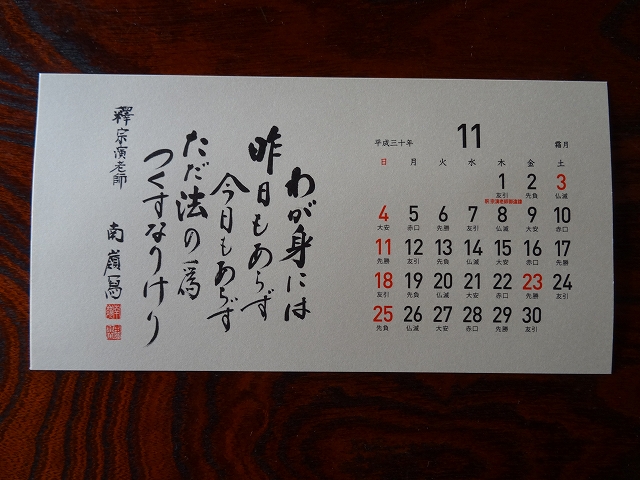 わが身には
昨日もあらず
今日もあらず
ただ法の為
つくすなりけり
釋宗演老師
南嶺寫
平成三十年 11 霜月
日 月 火 水 木 金 土
1 2 3
友引 先負 仏滅
4 5 6 7 8 9 10
大安 赤口 先勝 友引 仏滅 大安 赤口
11 12 13 14 15 16 17
先勝 友引 先負 仏滅 大安 赤口 先勝
18 19 20 21 22 23 24
友引 先負 仏滅 大安 赤口 先勝 友引
25 26 27 28 29 30
先負 仏滅 大安 赤口 先勝 友引